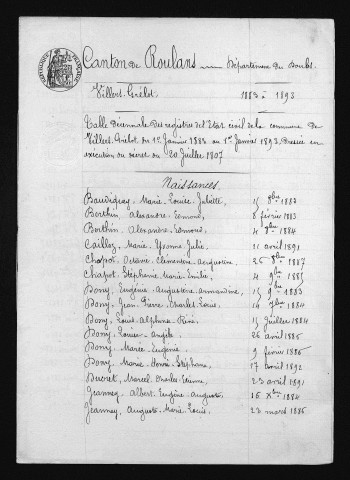 Canton de Roulans Département du Doubs.
Villers-Grélot. 1883 à 1893
Table Décennale des registres de l'Etat civil de la commune de
Villers-Grélot du 1er Janvier 1883 au 1er Janvier 1893, Dressée en
exécution du décret du 20 Juillet 1807
Naissances.
Marie Louise Juliette, 1883
Berthin, Alexandre Edmond, 8 février 1883
Berthin, Alexandre, Edmond, 4 1884
Marie, Yvonne Julie, 11 avril 1891
Chapot, Octavie Clémentine Augustine, 26 1887
Chapot, Stéphanie Marie Emilie, 4 9bre 1885
Dony, Eugénie Augustine Amandine, 1883
Dony, Jean Pierre, Charles Louis, 1884
Dony, Louis Alphonse René, 15 Juillet 1884
Dony, Louise Angèle 26 avril 1885
Dony, Marie Eugénie, 9 février 1886
Dony, Marie Stéphanie, 17 avril 1892
Ducret, Marcel Charles Etienne, 23 avril 1891
Jeanney, Albert Eugène Auguste 16 Xbre 1884
Jeannay, Auguste Marie Louis, 22 mars 1886